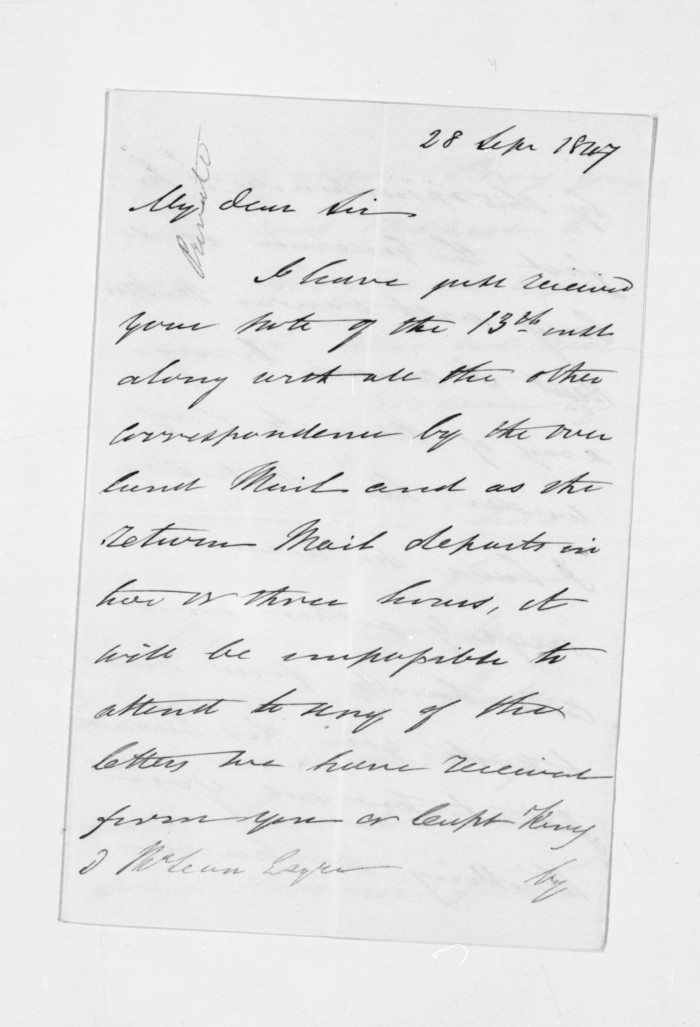 28 Sepr 1847
Private
My dear Sir
I have just received
your note of the 13th inst
along with all the other
correspondence by the over
land Mail and as the
return Mail departs in
two or three hours, it
will be impossible to
attend to any of the
letters we have received
from you or Capt King
D McLean Esqre
by